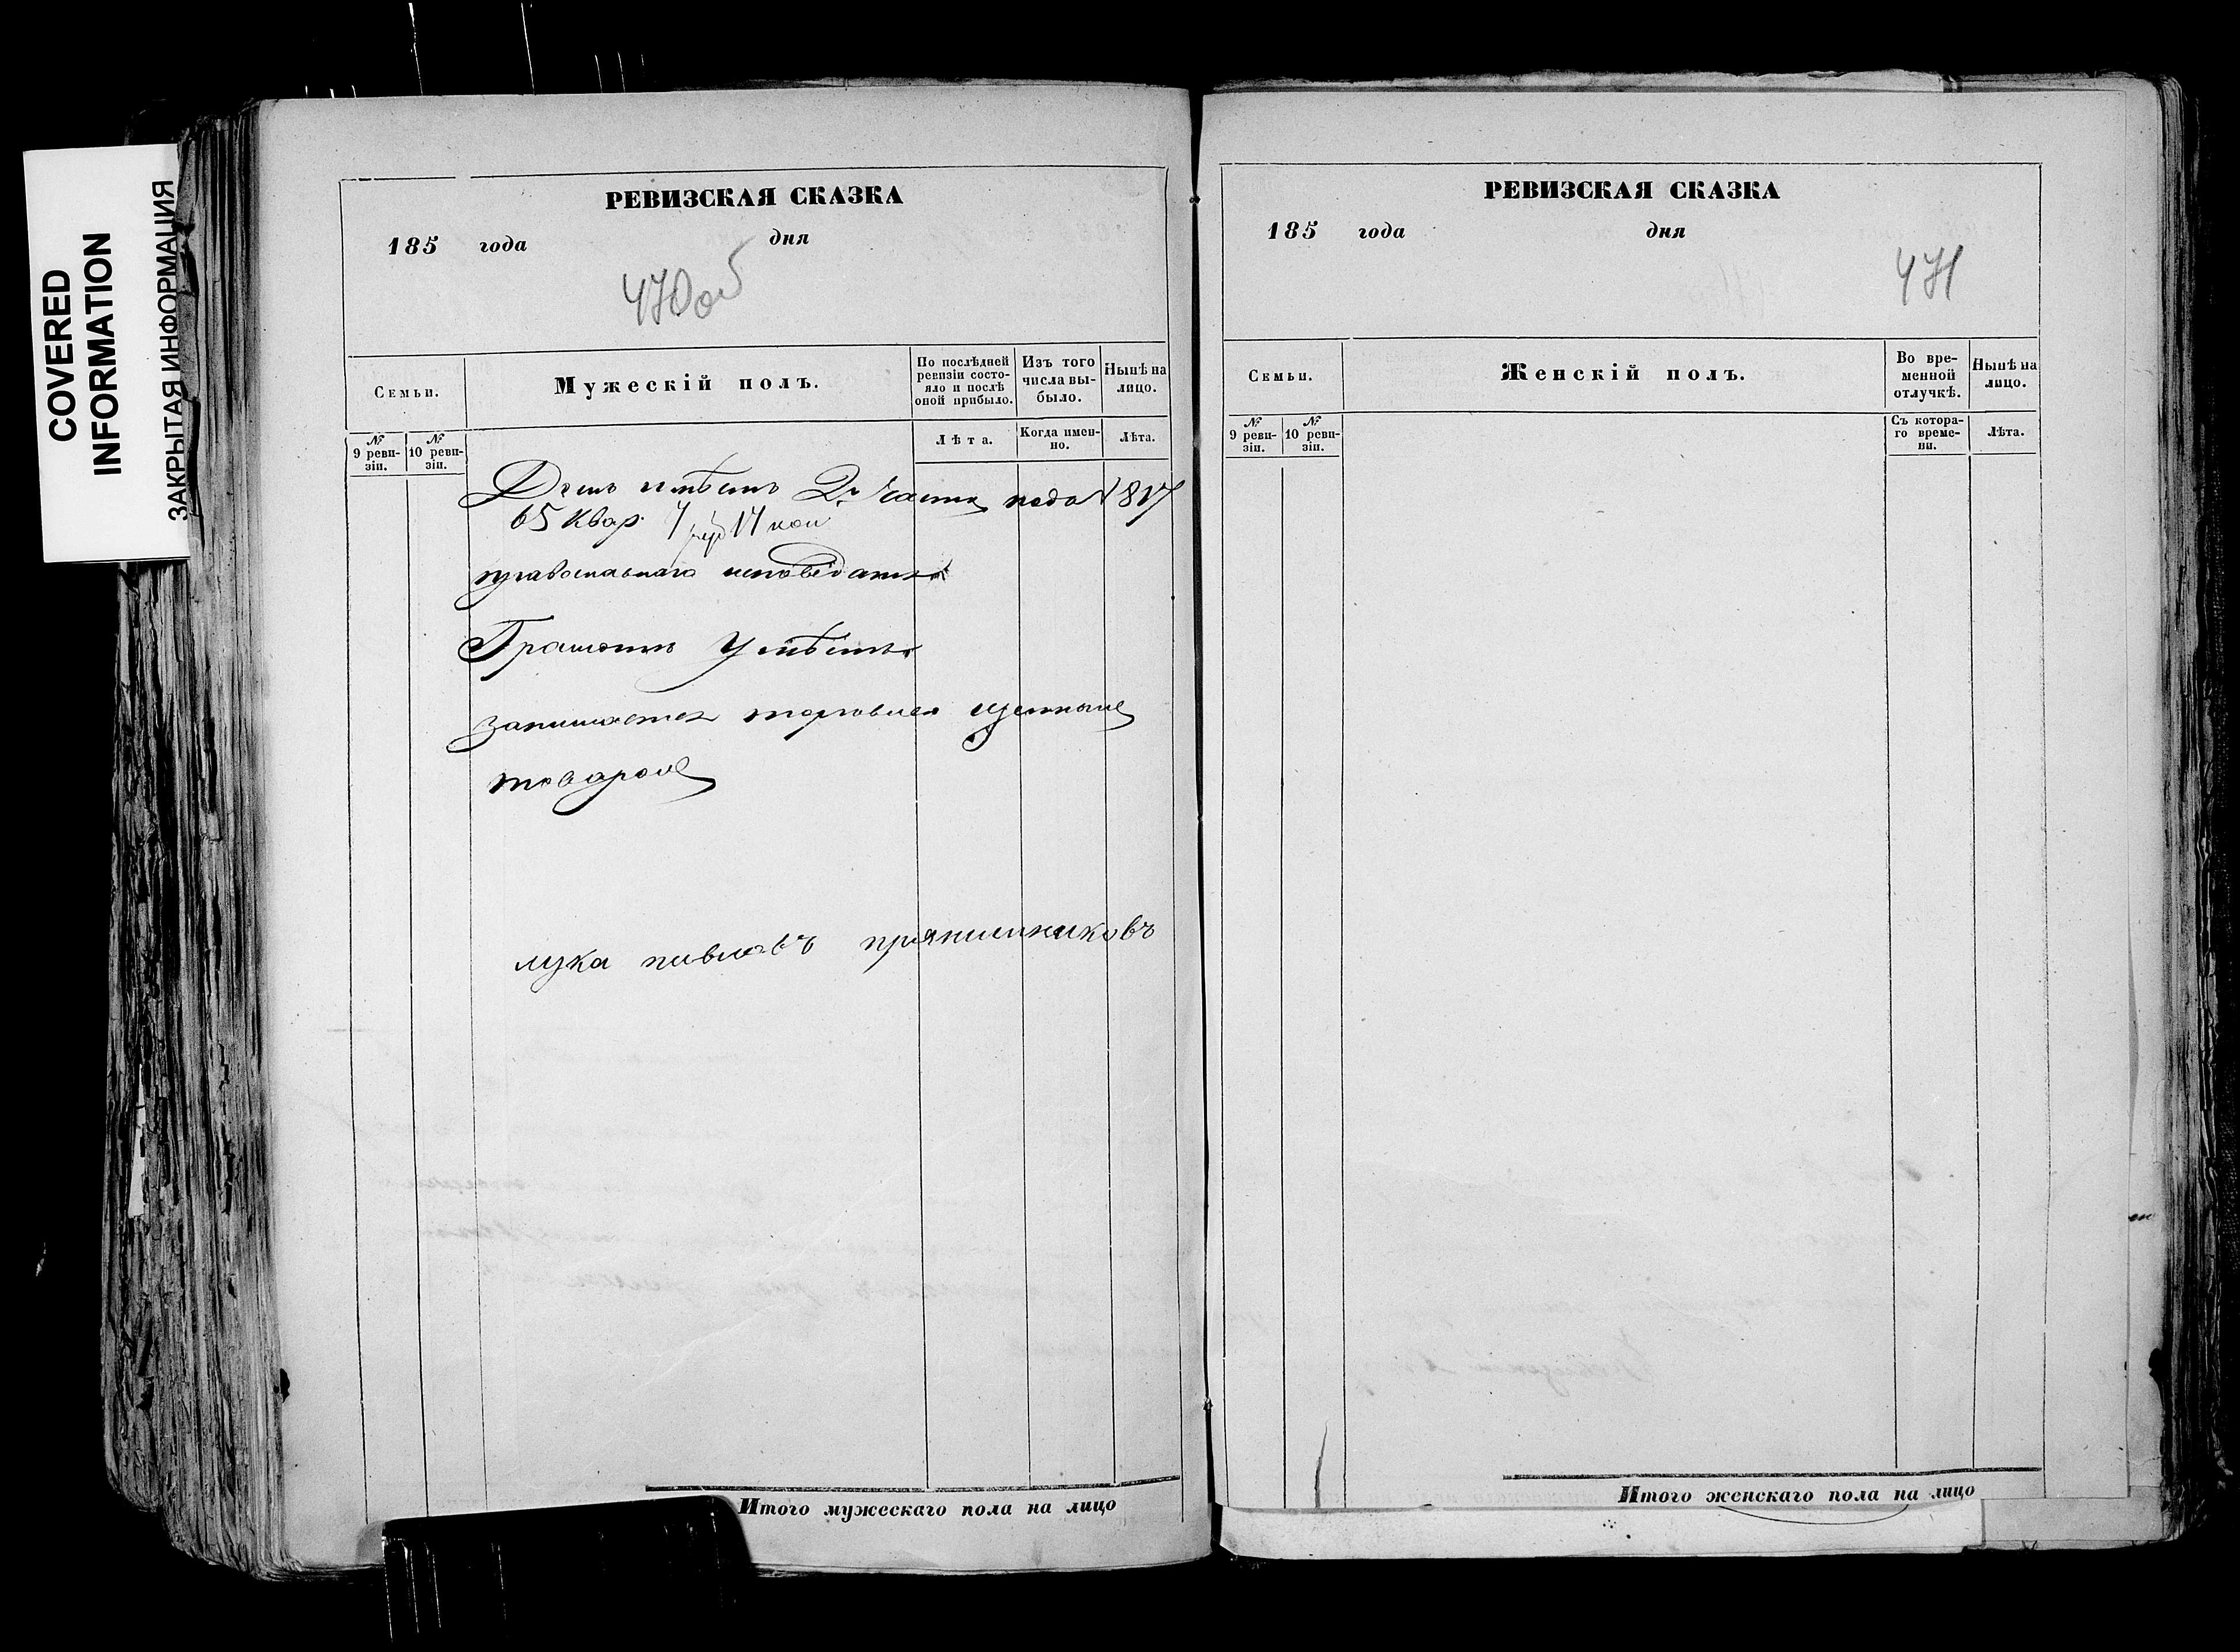 COVERED
INFORMATION
ЗАКРЫТАЯ ИНФОРМАЦИЯ
РЕВИЗСКАЯ СКАЗКА
185 года дня
470 об
Семьи.
Мужескій полъ.
По послѣдней ревизіи состояло и послѣ оной прибыло.
Изъ того числа выбыло.
Нынѣ на лицо.
№ 9 ревизіи.
№ 10 ревизіи.
Лѣта.
Когда именно.
Лѣта.
Домъ имѣетъ 2й части подъ № 817
65 квар. 17 коп
православнаго исповѣданія
Грамотѣ умѣетъ
занимается торговлею
товаромъ
лука павловъ прянишниковъ
Итого мужескаго пола на лицо
РЕВИЗСКАЯ СКАЗКА
185 года дня
471
Семьи.
Женскій полъ.
Во временной отлучкѣ.
Нынѣ на лицо.
№ 9 ревизіи.
№ 10 ревизіи.
Съ котораго времени.
Лѣта.
Итого женскаго пола на лицо